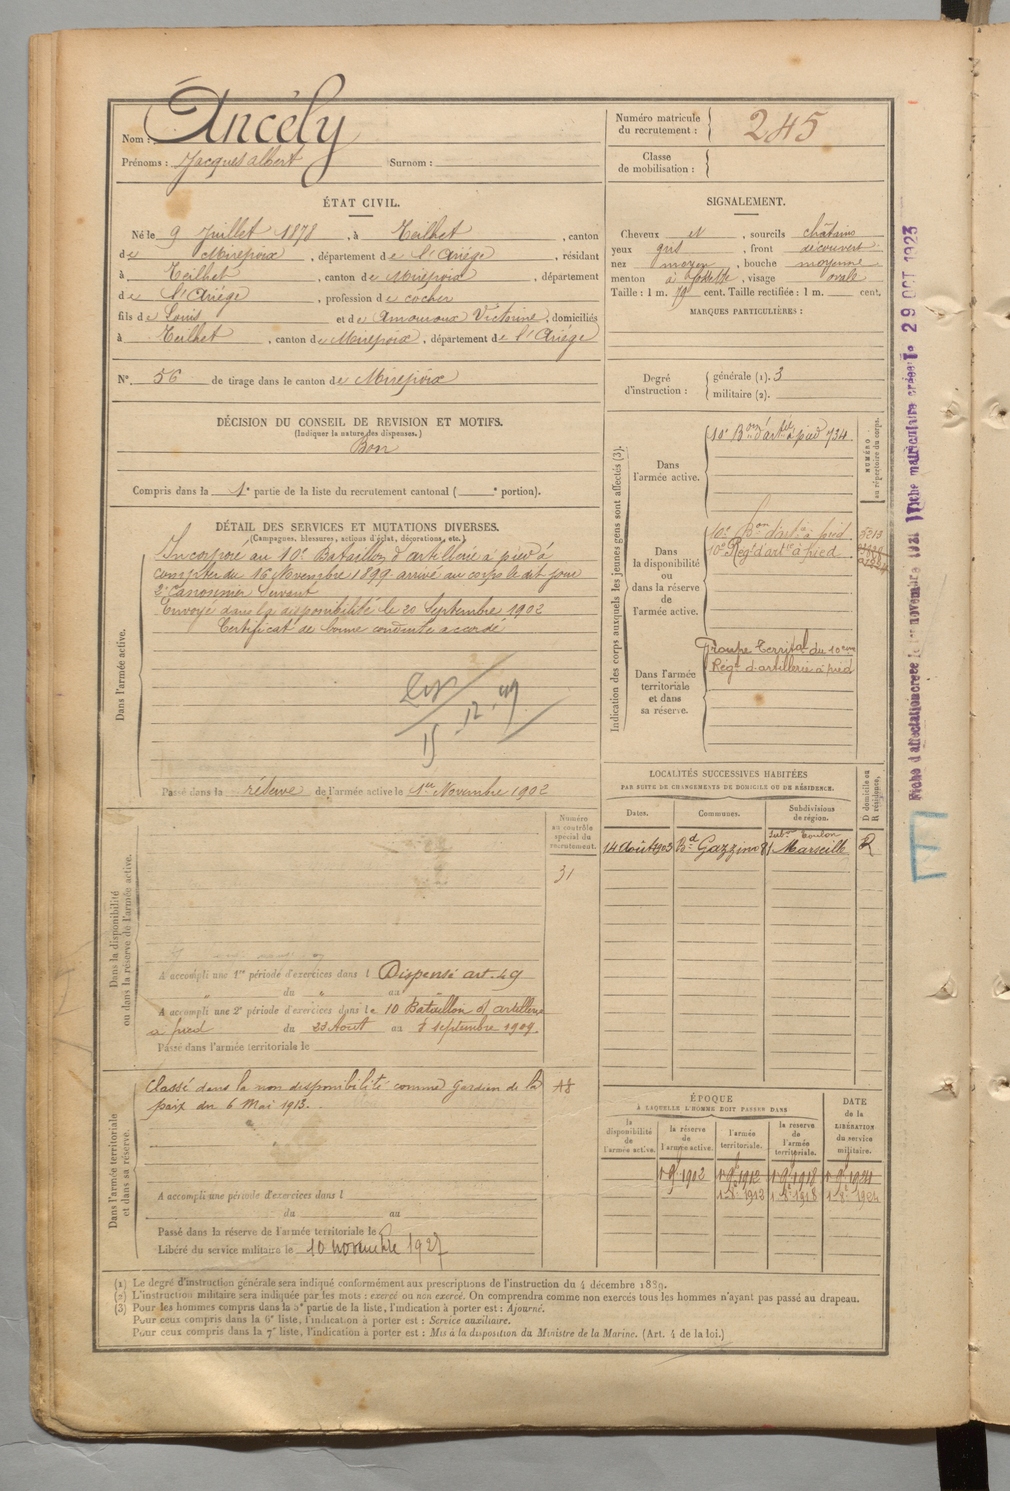 Nom : Ancély
Prénoms : Jacques albert Surnom :
Numéro matricule du recrutement : 245
Classe de mobilisation :
ÉTAT CIVIL.
Né le 9 Juillet 1878, à Teilhet, canton
de Mirepoix, département de l'Ariége, résidant
à Teilhet, canton de Mirepoix, département
de l'Ariége, profession de cocher
fils de Louis et de Amouroux Victorine, domiciliés
à Teilhet, canton de Mirepoix, département de l'Ariége
N° 56 de tirage dans le canton de Mirepoix
SIGNALEMENT.
Cheveux et, sourcils châtains
yeux gris, front découvert
nez moyen, bouche moyenne
menton à fossette, visage ovale
Taille : 1 m. cent. Taille rectifiée : 1 m. cent.
MARQUES PARTICULIÈRES :
Degré d'instruction : générale (1). 3
militaire (2).
DÉCISION DU CONSEIL DE REVISION ET MOTIFS.
(Indiquer la nature des dispenses.)
Bon
Compris dans la 1e partie de la liste du recrutement cantonal ( e portion).
DÉTAIL DES SERVICES ET MUTATIONS DIVERSES.
(Campagnes, blessures, actions d'éclat, décorations, etc.)
Dans l'armée active.
Incorporé au 10e Bataillon d'artillerie à pied à
compter du 16 Novembre 1899 arrivé au corps le dit jour
2e Canonnier Servant
Envoyé dans la disponibilité le 20 Septembre 1902
Certificat de bonne conduite accordé
Passé dans la réserve de l'armée active le 1er Novembre 1902
Indication des corps auxquels les jeunes gens sont affectés (3).
NUMÉRO au répertoire du corps.
Dans l'armée active.
10e Bon d'artie à pied 734
Dans la disponibilité ou dans la réserve de l'armée active.
10e Bon d'artie à pied
10e Régt d'artie à pied
Dans l'armée territoriale et dans sa réserve.
Troupe Territal du 10eme
Régt d'artillerie à pied
LOCALITÉS SUCCESSIVES HABITÉES
PAR SUITE DE CHANGEMENTS DE DOMICILE OU DE RÉSIDENCE.
Dates. Communes. Subdivisions de région. D domicile ou R résidence.
14 Août 1903 Bd Gazzino 81 Marseille R
Subn Toulon
Dans la disponibilité ou dans la réserve de l'armée active.
Numéro au contrôle spécial du recrutement.
31
A accompli une 1re période d'exercices dans l Dispensé art. 49
du au
A accompli une 2e période d'exercices dans le 10 Bataillon d'artillerie
à pied du 23 Août au 7 septembre 1909.
Passé dans l'armée territoriale le
Dans l'armée territoriale et dans sa réserve.
Classé dans la non disponibilité comme gardien de la
paix du 6 Mai 1913.
A accompli une période d'exercices dans l
du au
Passé dans la réserve de l'armée territoriale le
Libéré du service militaire le 10 novembre 1927
ÉPOQUE
À LAQUELLE L'HOMME DOIT PASSER DANS
la disponibilité de l'armée active. la réserve de l'armée active. l'armée territoriale. la réserve de l'armée territoriale.
DATE de la LIBÉRATION du service militaire.
1 9bre 1902 1 9bre 1912 1 9bre 1918 1 9bre 1924
(1) Le degré d'instruction générale sera indiqué conformément aux prescriptions de l'instruction du 4 décembre 1889.
(2) L'instruction militaire sera indiquée par les mots : exercé ou non exercé. On comprendra comme non exercés tous les hommes n'ayant pas passé au drapeau.
(3) Pour les hommes compris dans la 5e partie de la liste, l'indication à porter est : Ajourné.
Pour ceux compris dans la 6e liste, l'indication à porter est : Service auxiliaire.
Pour ceux compris dans la 7e liste, l'indication à porter est : Mis à la disposition du Ministre de la Marine. (Art. 4 de la loi.)
Fiche d'affectation créée le 1er novembre 1921
Fiche matriculaire créée le 29 OCT 1923